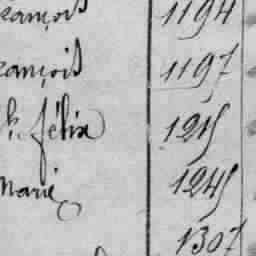 rançois 1194
rançois 1197
h. félix 1215
marie 1245
1307